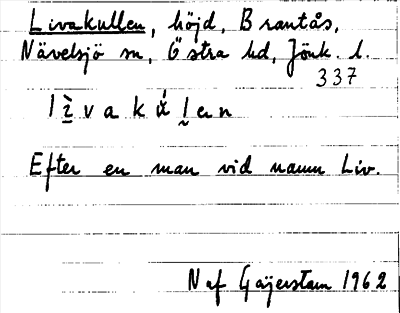 Livakullen, höjd, Brantås,
Nävelsjö sn, Östra hd, Jönk. l.
337
Efter en man vid namn Liv.
N af Gäijerstam 1962